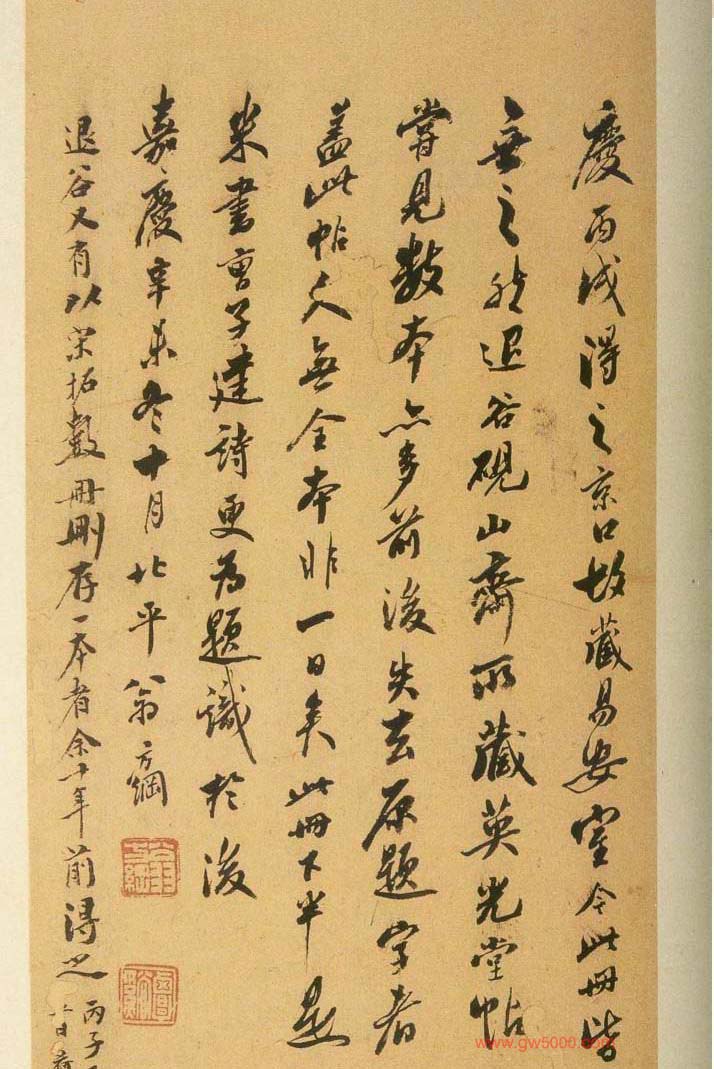 慶丙戌得之京口故藏易安室今此冊皆
無之然退谷硯山齋所藏英光堂帖
嘗見數本亦多前後失去原題字者
蓋此帖久無全本非一日矣此冊下半是
米書曹子建詩更為題識於後
嘉慶辛未冬十月北平翁方綱
退谷又有以宋拓數冊刪存一本者余十年前得之
丙子
www.gw5000.com